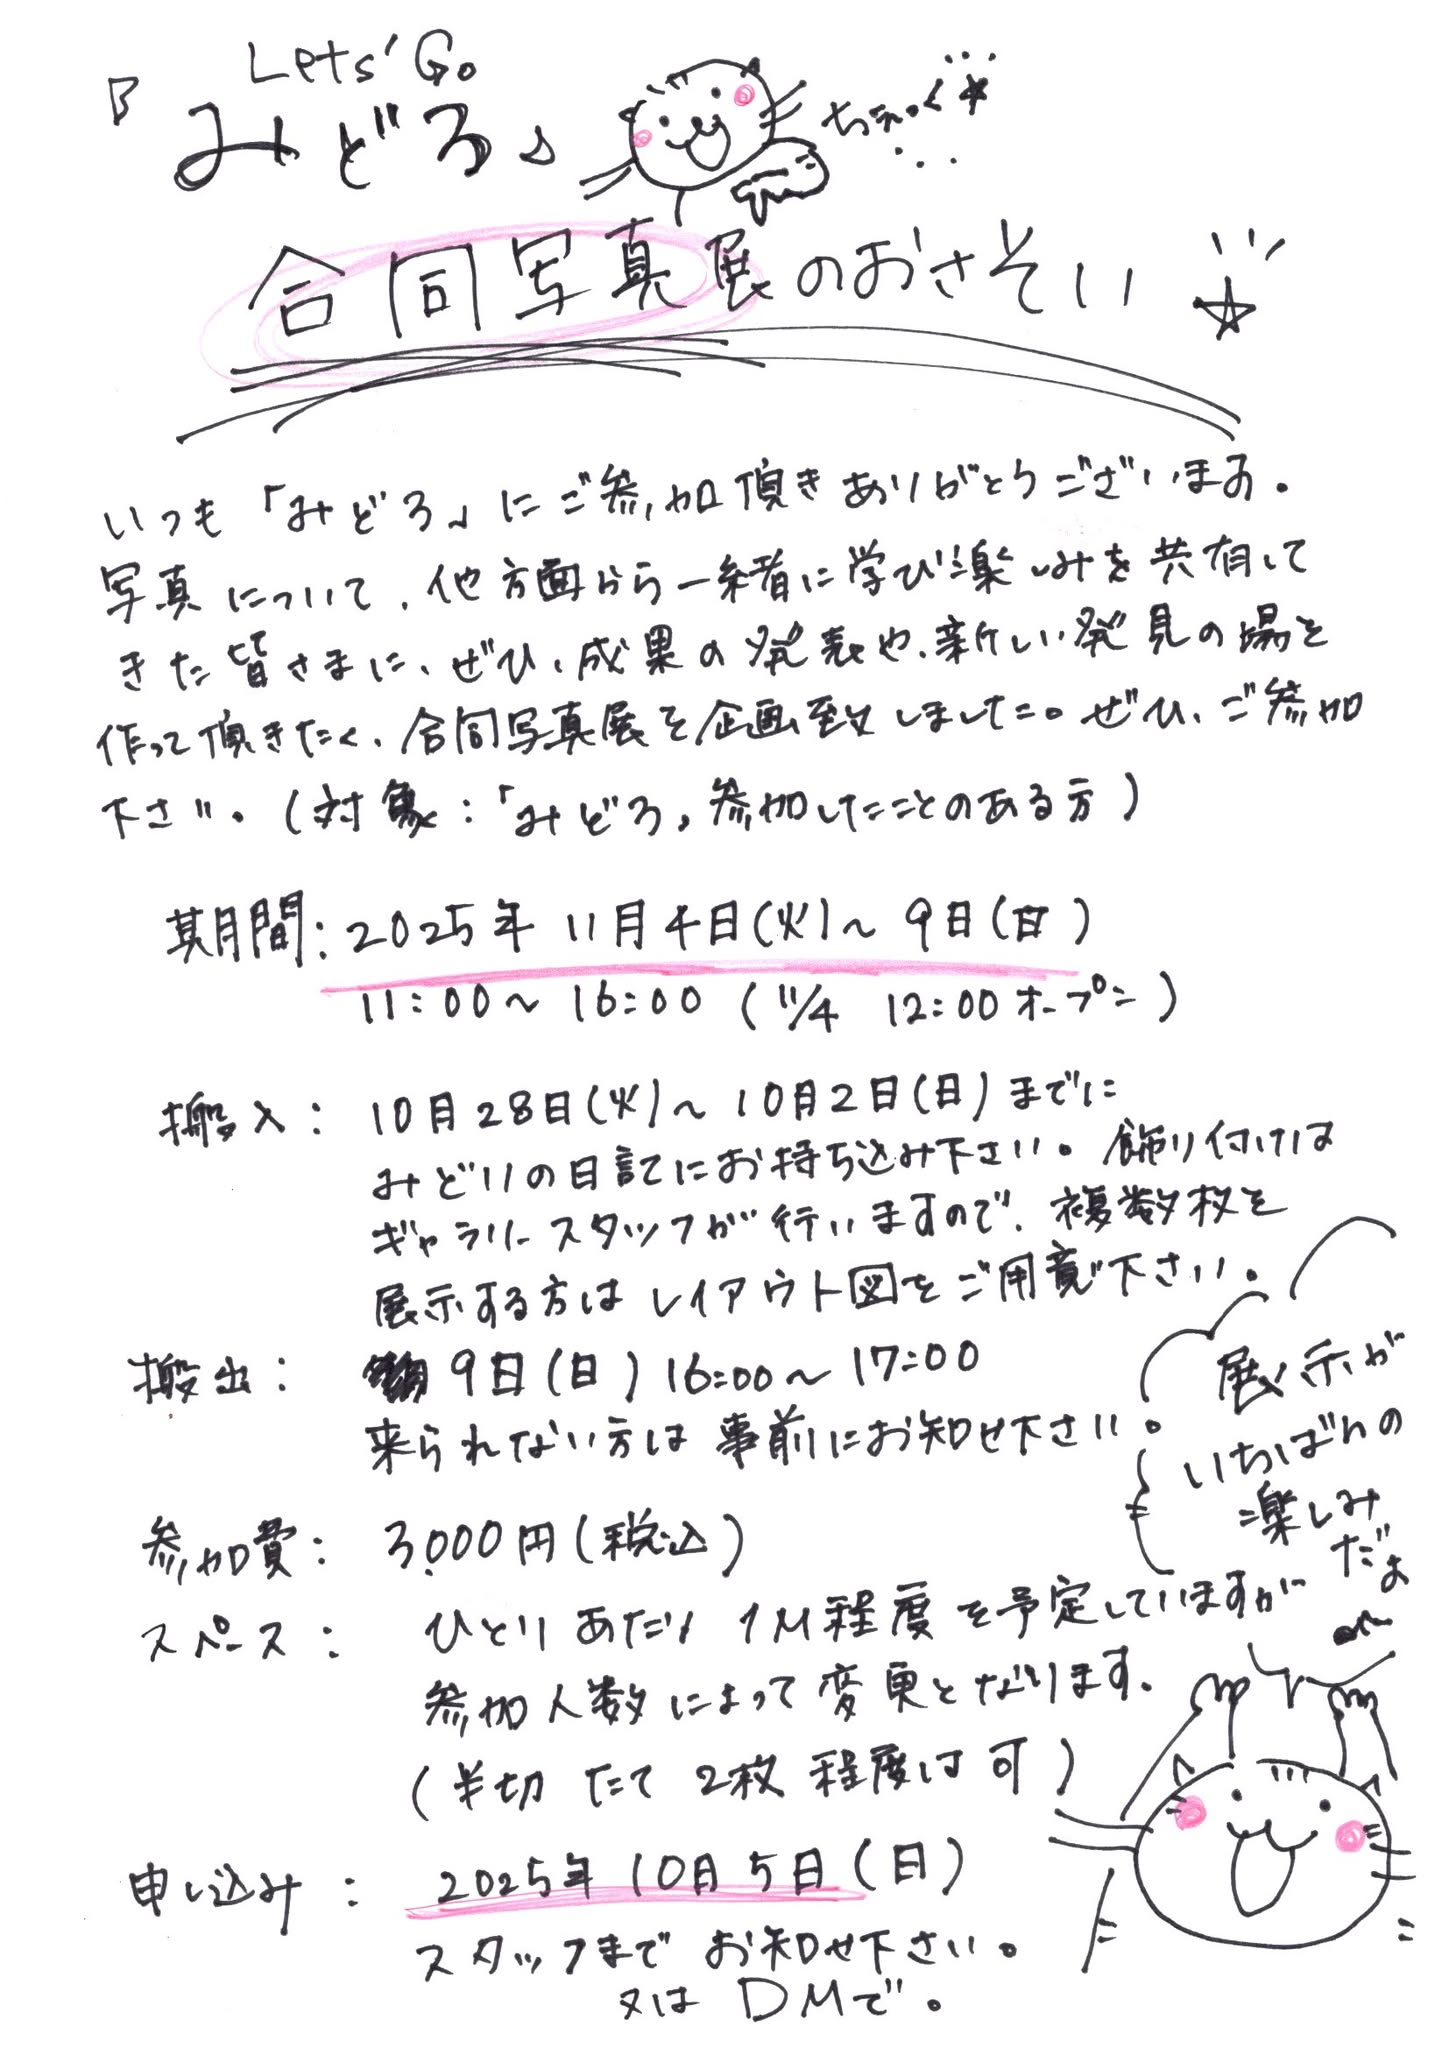 Lets' Go
『みどろ』
ちぇっく☆
合同写真展のおさそい☆
いつも「みどろ」にご参加頂きありがとうございます。
写真について、他方面から一緒に学び楽しみを共有して
きた皆さまに、ぜひ、成果の発表や、新しい発見の場を
作って頂きたく、合同写真展を企画致しました。ぜひ、ご参加
下さい。(対象:「みどろ」参加したことのある方)
期間:2025年 11月4日(火)～9日(日)
11:00～16:00 (11/4 12:00オープン)
搬入: 10月28日(火)～10月2日(日)までに
みどりの日記にお持ち込み下さい。飾り付けは
ギャラリースタッフが行いますので、複数枚を
展示する方はレイアウト図をご用意下さい。
搬出: 9日(日)16:00～17:00
来られない方は事前にお知せ下さい。
展示が
いちばんの
楽しみ
だよ
参加費: 3,000円(税込)
スペース: ひとりあたり 1M程度を予定していますが
参加人数によって変更となります。
(半切 たて 2枚 程度は可)
申し込み: 2025年10月5日(日)
スタッフまで お知せ下さい。
又は DMで。